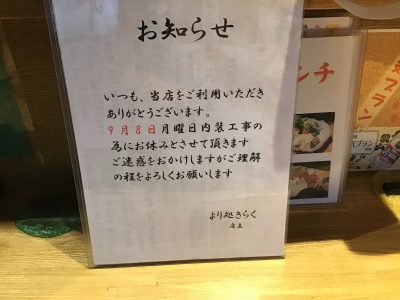 お知らせ
いつも、当店をご利用いただき
ありがとうございます。
9月8日月曜日内装工事の
為にお休みとさせて頂きます
ご迷惑をおかけしますがご理解
の程をよろしくお願いします
より処きらく
店主
ンチ
プラン